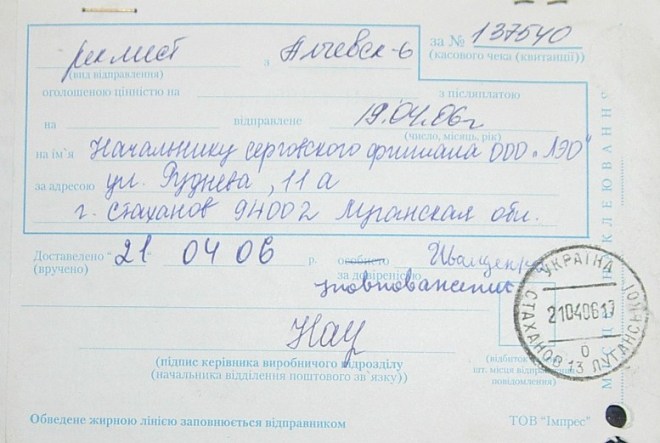 рек лист з Алчевск-6 за № 137540
(вид відправлення) (касового чека (квитанції))
оголошеною цінністю на з післяплатою
на відправлене 19.04.06г
(число, місяць, рік)
на ім'я Начальнику серговского филиала ООО "ЛЭО"
за адресою ул. Руднева, 11 а
г. Стаханов 94002 Луганская обл.
Доставлено "21 04 06 р. особисто Иващенко
(вручено) за довіреністю
уповноважений
Нач
(підпис керівника виробничого підрозділу
(начальника відділення поштового зв'язку))
(відбиток
місця відправлення
повідомлення)
УКРАЇНА
21040617
0
СТАХАНОВ 13 ЛУГАНСЬКОЇ
Обведене жирною лінією заповнюється відправником ТОВ "Імпрес"